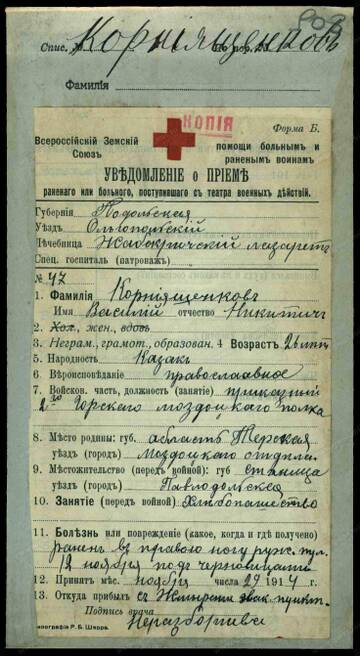 Спис. № Корніященковъ По пор. №
Фамилія
КОПІЯ
Форма Б.
Всероссійскій Земскій
Союзъ
помощи больнымъ и
раненымъ воинамъ
УВѢДОМЛЕНІЕ О ПРІЕМѢ
раненаго или больного, поступившаго съ театра военныхъ дѣйствій.
Губернія Подольская
Уѣздъ Ольгопольскій
Лѣчебница Жабокричскій лазаретъ
Спец. госпиталь (патронаж.)
№ 47
1. Фамилія Корніященковъ
Имя Василій отчество Никитичъ
2. Хол., жен., вдовъ
3. Неграм., грамот., образован. 4 Возрастъ 26 лѣтъ
5. Народность Казакъ
6. Вѣроисповѣданіе православное
7. Войсков. часть, должность (занятіе) приказный
2го Горскаго моздокскаго полка
8. Мѣсто родины: губ. область Терская
уѣздъ (городъ) Моздокскаго отдѣла
9. Мѣстожительство (передъ войной): губ станица
уѣздъ (городъ) Павлодольская
10. Занятіе (передъ войной) Хлѣбопашество
11. Болѣзнь или поврежденіе (какое, когда и гдѣ получено)
раненъ въ правою ногу руж. пул.
12 ноября подъ черновицами
12. Принятъ мѣс. ноября числа 29 1914 г.
13. Откуда прибылъ съ Жмеринск эвак. пункт.
Подпись врача
Неразборчиво
Типографія Р. Б. Шерра.